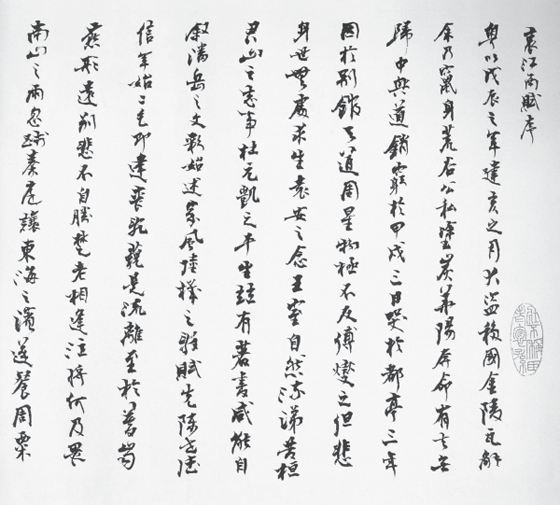 哀江南賦序
粵以戊辰之年建亥之月大盜移國金陵瓦解
余乃竄身荒谷公私塗炭華陽奔命有去無
歸中興道銷窮於甲戌三日哭於都亭三年
囚於別館天道周星物極不反傅燮之但悲
身世無處求生袁安之念王室自然流涕昔桓
君山之志事杜元凱之平生並有著書咸能自
敘潘岳之文彩始述家風陸機之辭賦先陳世德
信年始二毛即逢喪亂藐是流離至於暮齒
燕歌遠別悲不自勝楚老相逢泣將何及畏
南山之雨忽踐秦庭讓東海之濱遂餐周粟